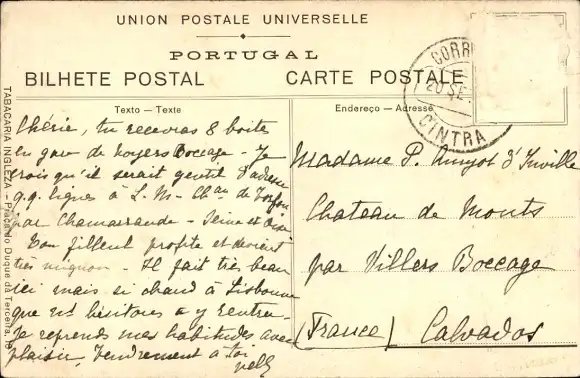 UNION POSTALE UNIVERSELLE
PORTUGAL
BILHETE POSTAL
CARTE POSTALE
CORR
20 SE
CINTRA
TABACARIA INGLEZA – Praça do Duque da Terceira, 18
Texto — Texte
Chérie, tu recevras 8 boites
en gare de Noyers Bocage – Je
crois qu'il serait gentil d'adresser
q.q. lignes à L. M – Chau de
par Chamarande – Seine et Oise
Ton filleul profite et devient
très mignon – Il fait très beau
ici mais si chaud à Lisbonne
que ns hésitons à y rentrer
Je reprends mes habitudes avec
plaisir, tendrement à toi
Endereço — Adresse
Madame P. Amyot d'Inville
Chateau de Monts
par Villers Boccage
(France) Calvados